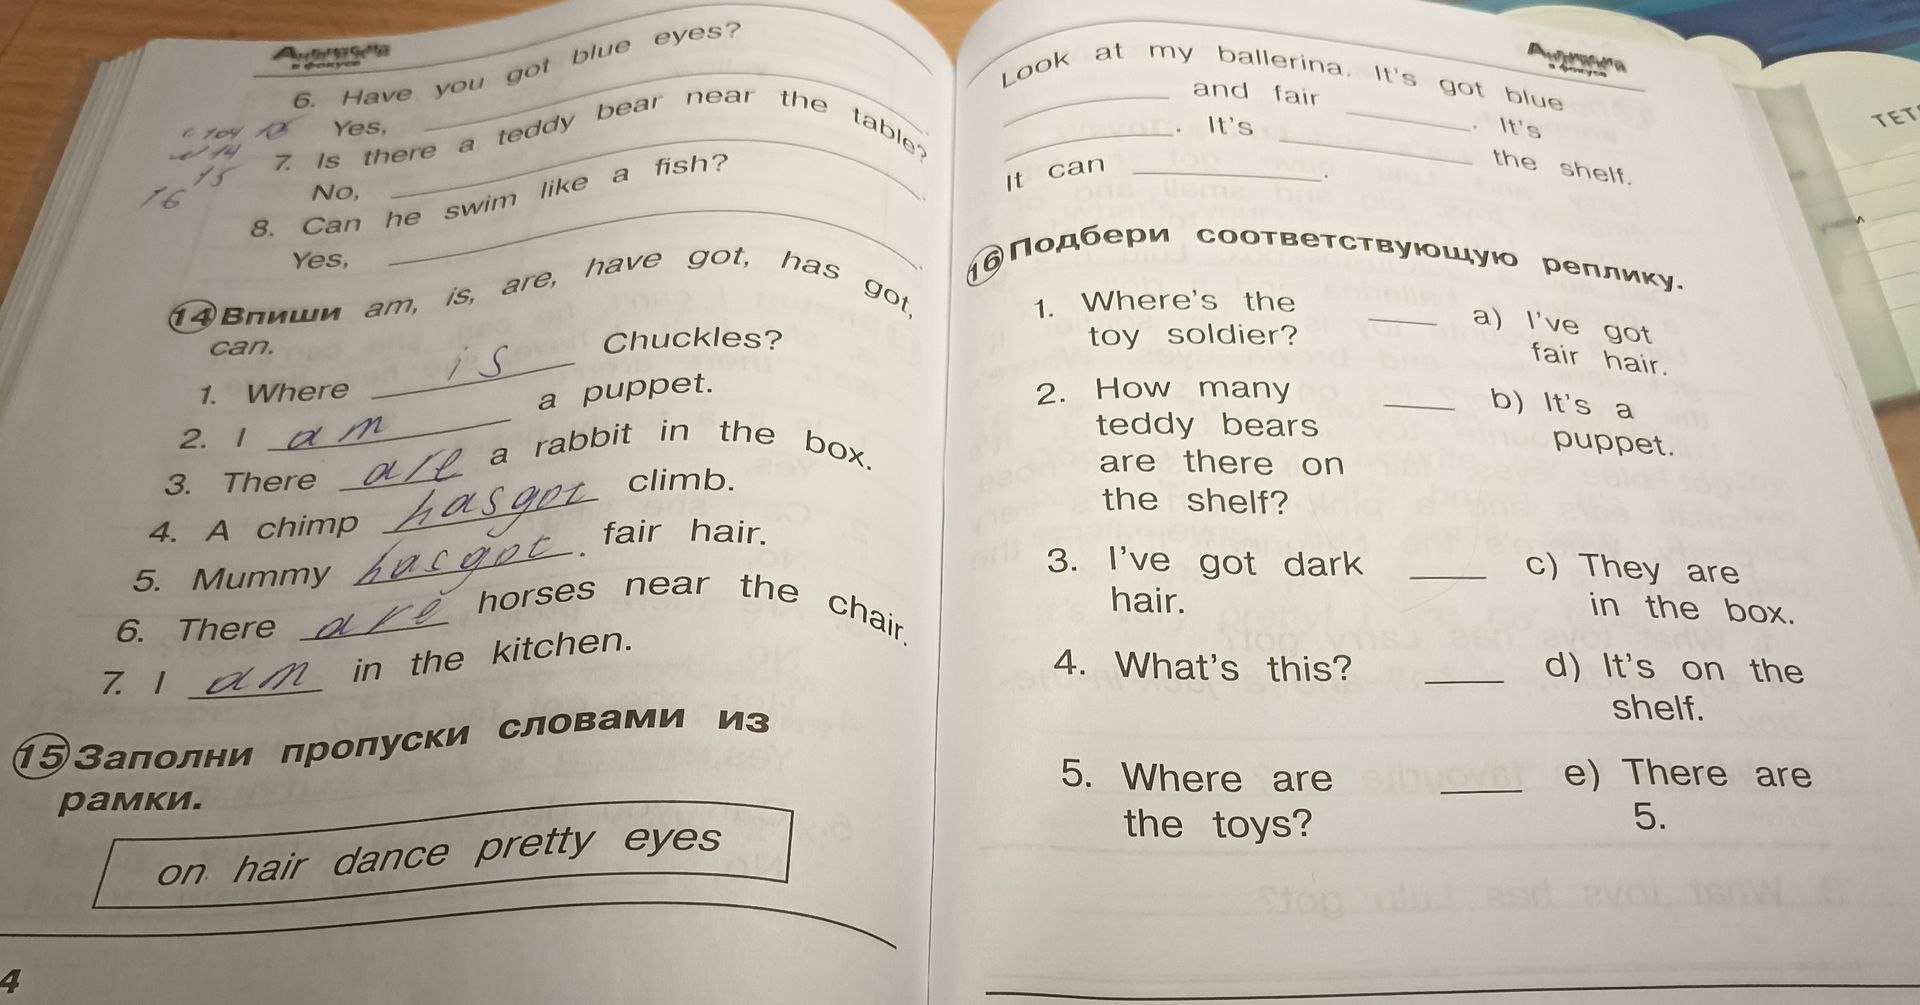 Английский
в фокусе
6. Have you got blue eyes?
Yes, ____.
с 104 13
14
15
16
7. Is there a teddy bear near the table?
No, ____.
8. Can he swim like a fish?
Yes, ____.
14 Впиши am, is, are, have got, has got,
can.
1. Where is Chuckles?
2. I am a puppet.
3. There are a rabbit in the box.
4. A chimp has got climb.
5. Mummy has got fair hair.
6. There are horses near the chair.
7. I am in the kitchen.
15 Заполни пропуски словами из
рамки.
on hair dance pretty eyes
4
Английский
в фокусе
Look at my ballerina. It's got blue
____ and fair ____. It's
____. It's ____ the shelf.
It can ____.
16 Подбери соответствующую реплику.
1. Where's the ____ a) I've got
toy soldier? fair hair.
2. How many ____ b) It's a
teddy bears puppet.
are there on
the shelf?
3. I've got dark ____ c) They are
hair. in the box.
4. What's this? ____ d) It's on the
shelf.
5. Where are ____ e) There are
the toys? 5.
ТЕТ